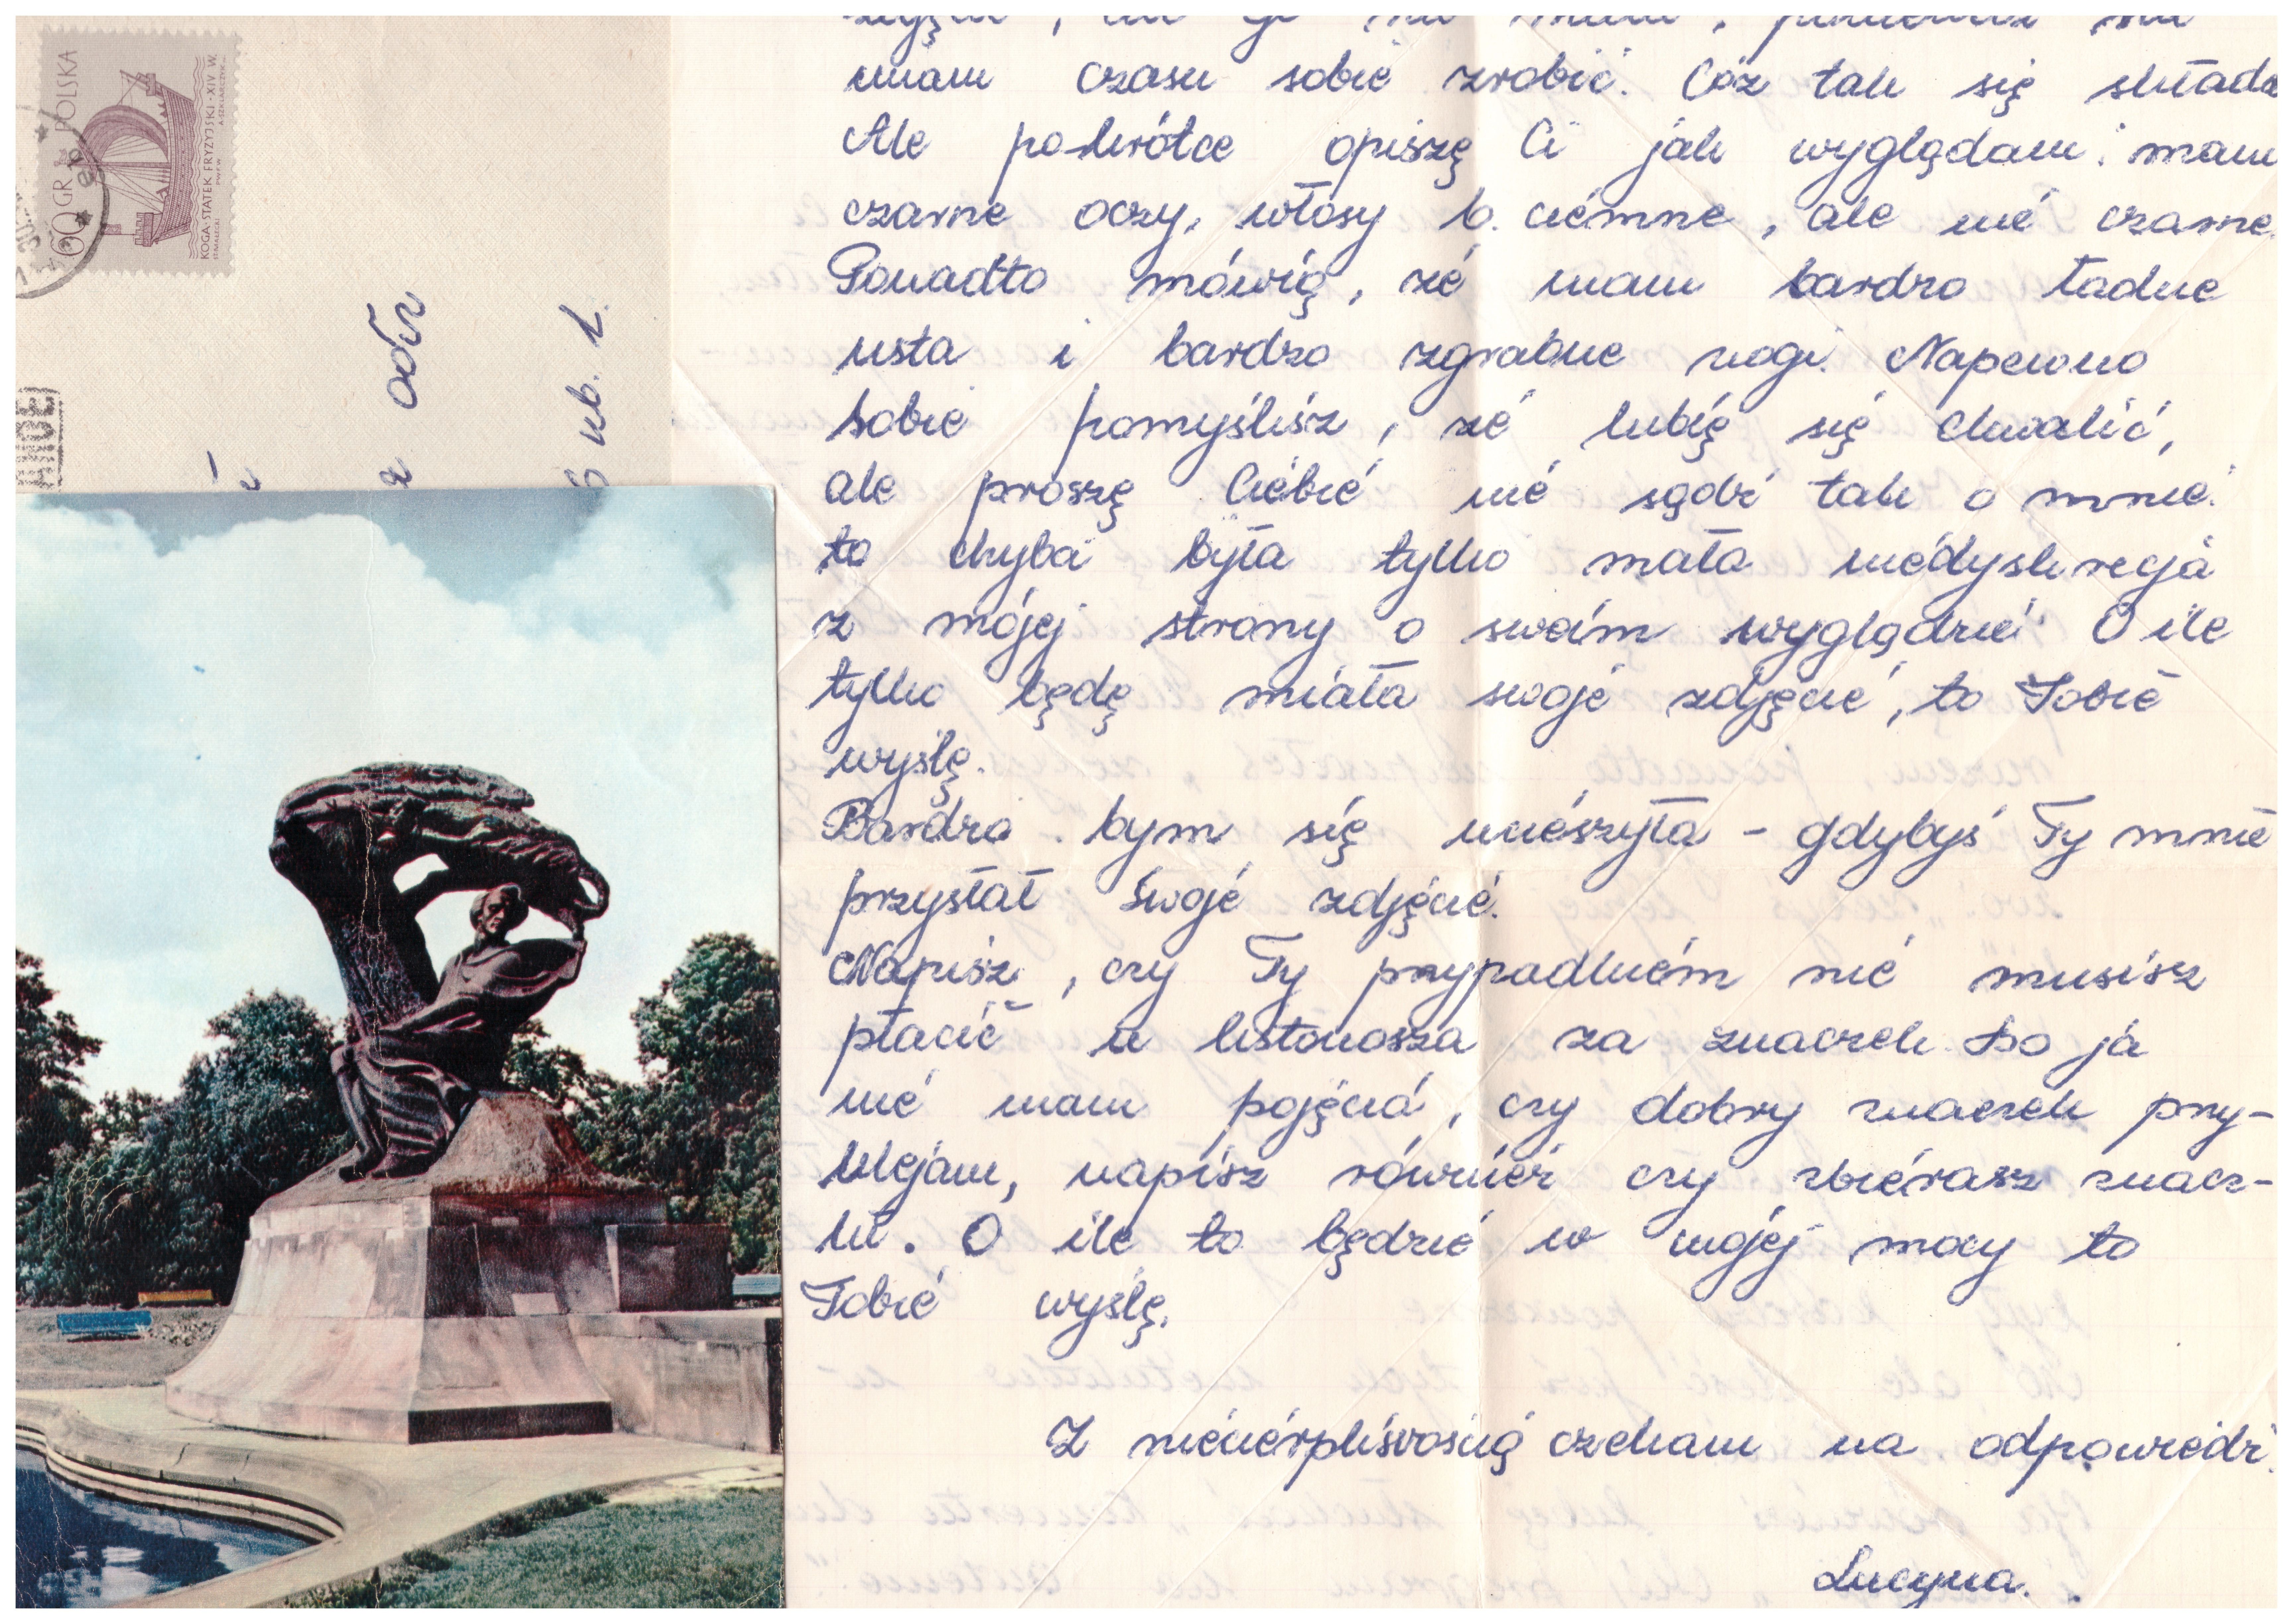 POLSKA
60 GR
KOGA-STATEK FRYZYJSKI-XIV W.
odr
ub. 1.
mam czasu sobie zrobić. Cóż tak się składa
Ale po-krótce opiszę Ci jak wyglądam: mam
czarne oczy, włosy b. ciemne, ale nie czarne.
Ponadto mówią, że mam bardzo ładne
usta i bardzo zgrabne nogi. Napewno
sobie pomyślisz, że lubię się chwalić,
ale proszę Ciebie nie sądź tak o mnie.
to chyba była tylko mała niedyskrecja
z mojej strony o swoim wyglądzie. O ile
tylko będę miała swoje zdjęcie, to Tobie
wyślę.
Bardzo bym się ucieszyła - gdybyś Ty mnie
przysłał swoje zdjęcie.
Napisz, czy Ty przypadkiem nie musisz
płacić u listonosza za znaczek. Bo ja
nie mam pojęcia, czy dobry znaczek przy-
klejam, napisz również czy zbierasz znacz-
ki. O ile to będzie w mojej mocy to
Tobie wyślę.
Z niecierpliwością czekam na odpowiedź.
Lucyna.